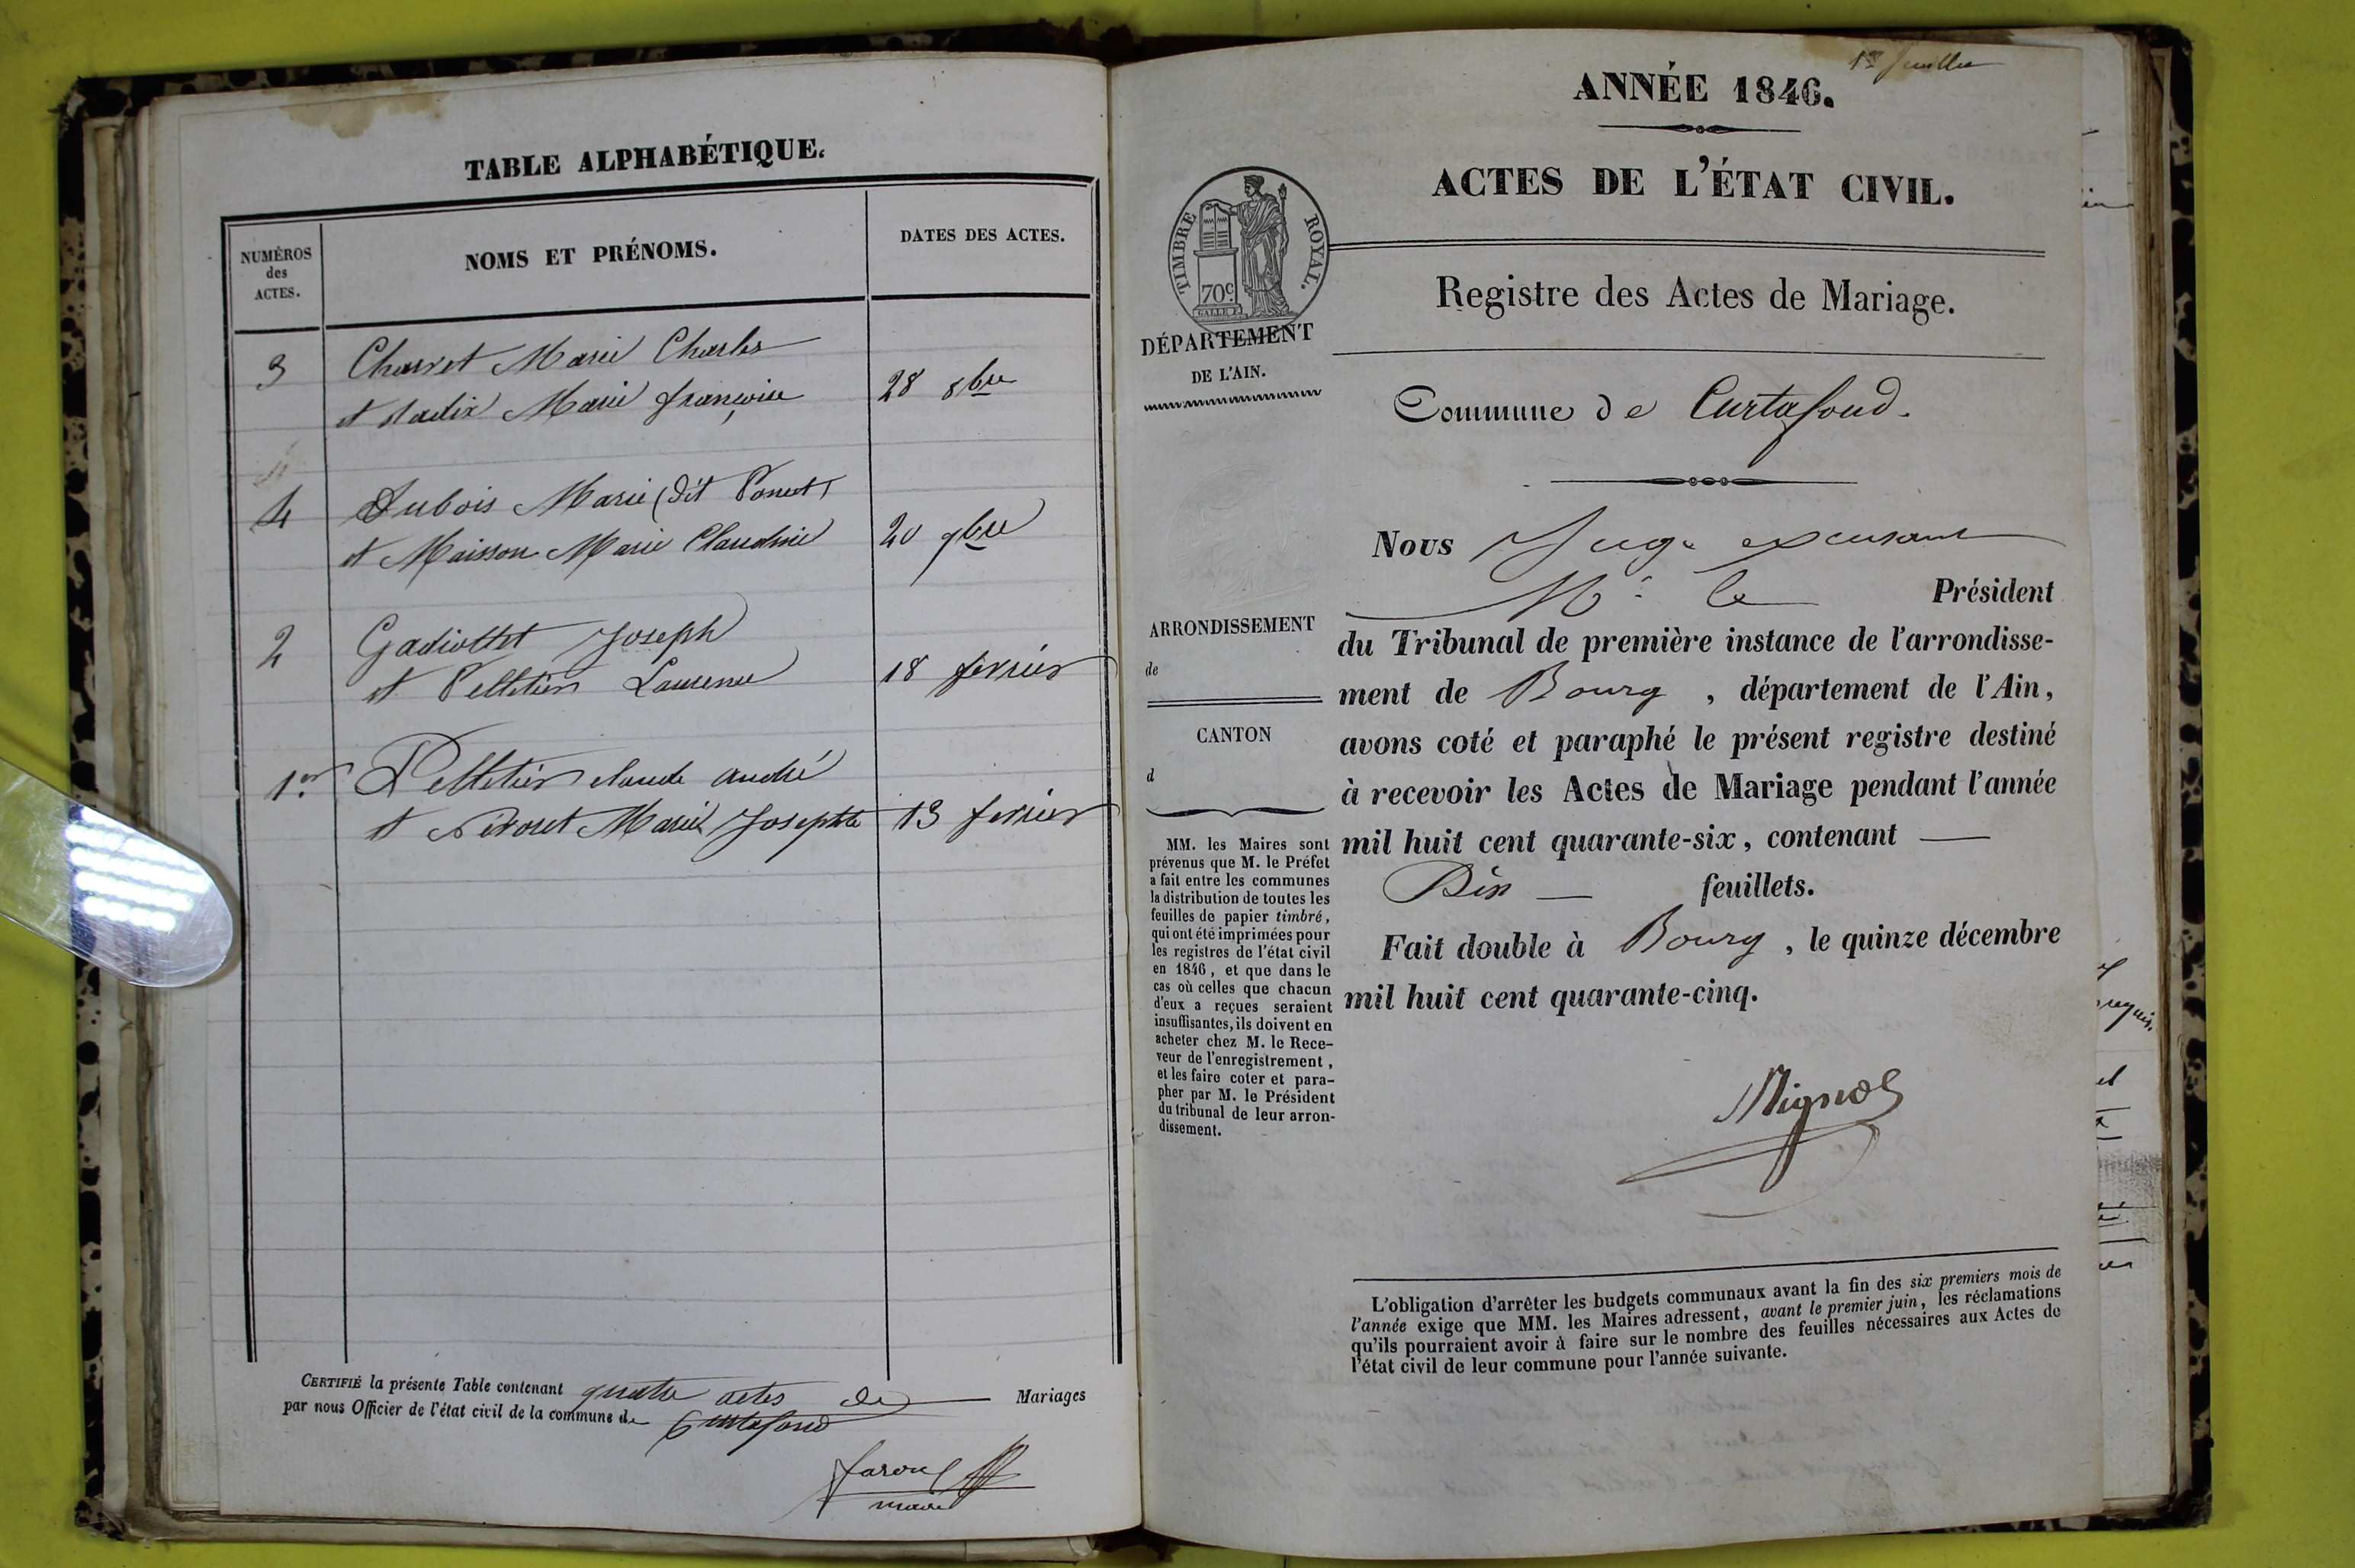 TABLE ALPHABÉTIQUE.
NUMÉROS
des
ACTES.
NOMS ET PRÉNOMS.
DATES DES ACTES.
3
Charvet Marie Charles
et Marie françoise
28 8bre
4
Dubois Marie (dit Poncet)
et Maisson Marie Claudine
20 9bre
2
Gadiollet Joseph
et Pelletier Laurence
18 fevrier
1er
Pelletier claude andré
et Marie Josephte
13 fevrier
CERTIFIÉ la présente Table contenant quatre actes de Mariages
par nous Officier de l'état civil de la commune de Curtafond
maire
1er feuillet
ANNÉE 1846.
ACTES DE L'ÉTAT CIVIL.
TIMBRE ROYAL.
70c
Registre des Actes de Mariage.
DÉPARTEMENT
DE L'AIN.
Commune de Curtafond.
Nous Juge
Mr le Président
ARRONDISSEMENT
de
CANTON
d
du Tribunal de première instance de l'arrondisse-
ment de Bourg, département de l'Ain,
avons coté et paraphé le présent registre destiné
à recevoir les Actes de Mariage pendant l'année
mil huit cent quarante-six, contenant —
Dix — feuillets.
Fait double à Bourg, le quinze décembre
mil huit cent quarante-cinq.
MM. les Maires sont
prévenus que M. le Préfet
a fait entre les communes
la distribution de toutes les
feuilles de papier timbré,
qui ont été imprimées pour
les registres de l'état civil
en 1846, et que dans le
cas où celles que chacun
d'eux a reçues seraient
insuffisantes, ils doivent en
acheter chez M. le Rece-
veur de l'enregistrement,
et les faire coter et para-
pher par M. le Président
du tribunal de leur arron-
dissement.
L'obligation d'arrêter les budgets communaux avant la fin des six premiers mois de
l'année exige que MM. les Maires adressent, avant le premier juin, les réclamations
qu'ils pourraient avoir à faire sur le nombre des feuilles nécessaires aux Actes de
l'état civil de leur commune pour l'année suivante.